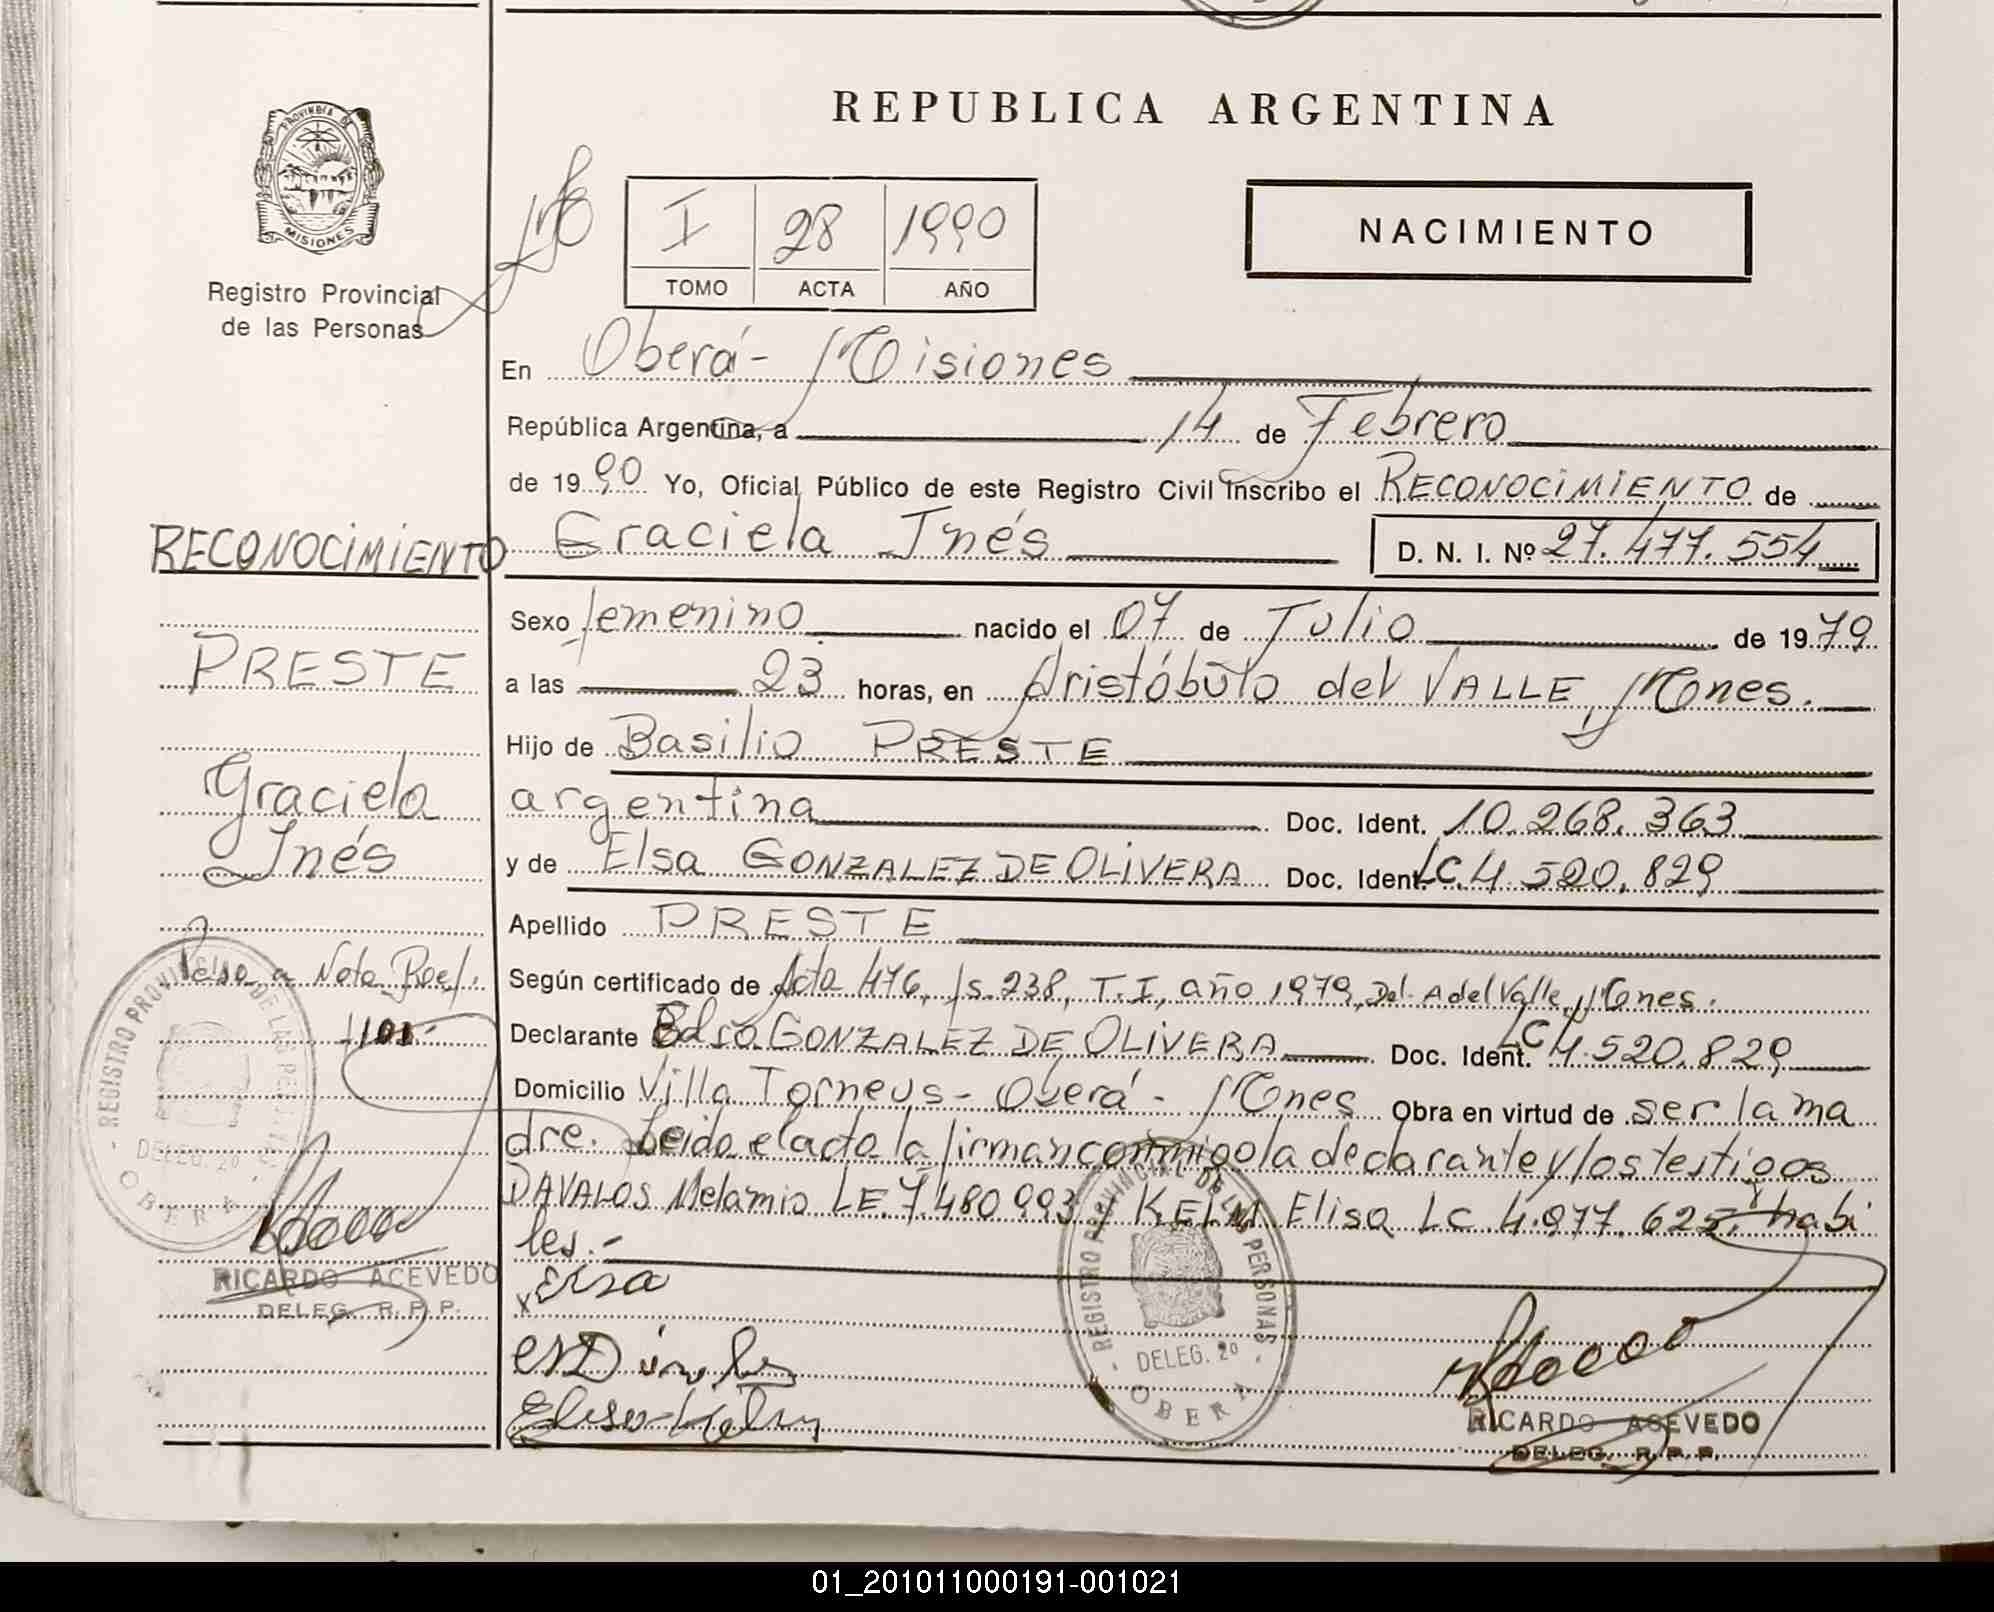 REPUBLICA ARGENTINA
PROVINCIA DE
MISIONES
Registro Provincial
de las Personas
I 28 1990
TOMO ACTA AÑO
NACIMIENTO
En Oberá - Misiones
República Argentina, a 14 de Febrero
de 1990 Yo, Oficial Público de este Registro Civil inscribo el RECONOCIMIENTO de
Graciela Inés D. N. I. Nº 27.477.554
Sexo femenino nacido el 07 de Julio de 1979
a las 23 horas, en Aristóbulo del VALLE, Mnes.
Hijo de Basilio PRESTE
argentina Doc. Ident. 10.268.363
y de Elsa GONZALEZ DE OLIVERA Doc. Ident. LC. 4.520.829
Apellido PRESTE
Según certificado de Acta 476, fs. 238, T. I, año 1979, Del. A del Valle, Mnes.
Declarante Elsa GONZALEZ DE OLIVERA Doc. Ident. LC 4.520.829
Domicilio Villa Torneus - Oberá - Mnes Obra en virtud de ser la ma
dre. Leida el acta la firman conmigo la declarante y los testigos
DAVALOS LE. 7.480.993 y KELM Elisa LC 4.977.625, habi
les.-
x Elsa
Elisa Kelm
REGISTRO PROVINCIAL DE LAS PERSONAS
DELEG. 2º
OBERA
RICARDO ACEVEDO
DELEG. R. P. P.
RECONOCIMIENTO
PRESTE
Graciela
Inés
Pasa a Nota Ref.
REGISTRO PROVINCIAL DE LAS PERSONAS
DELEG. 2º
OBERA
RICARDO ACEVEDO
DELEG. R. P. P.
01_201011000191-001021